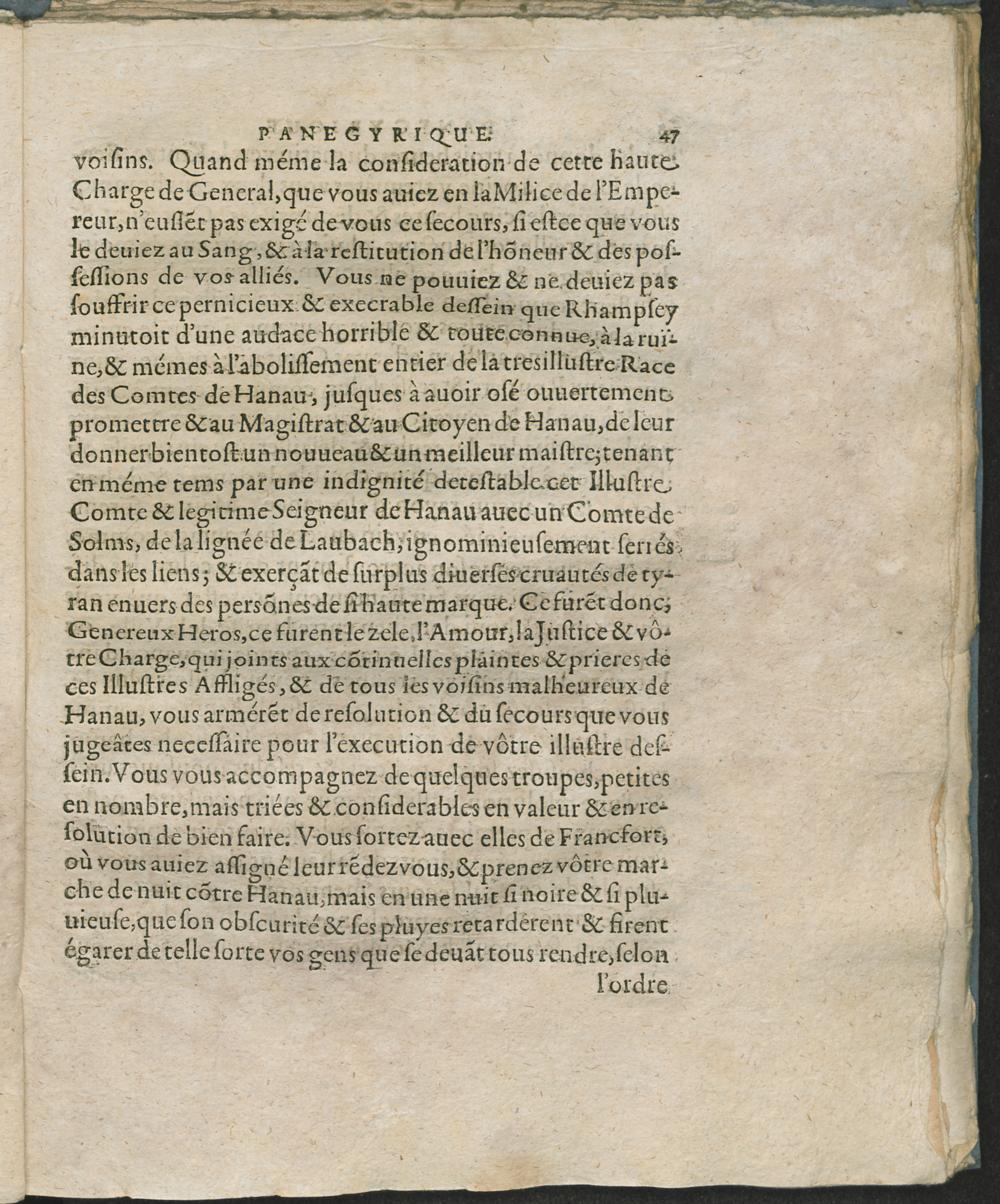 PANEGYRIQUE. 47
voiſins. Quand méme la conſideration de cette haute
Charge de General, que vous auiez en la Milice de l'Empe-
reur, n'euſſẽt pas exigé de vous ce ſecours, ſi eſtce que vous
le deuiez au Sang, & à la reſtitution de l'hõneur & des poſ-
ſeſſions de vos alliés. Vous ne pouuiez & ne deuiez pas
ſouffrir ce pernicieux & execrable deſſein que Rhampſey
minutoit d'une audace horrible & toute connue, à la ruï-
ne, & mémes à l'aboliſſement entier de la tresilluſtre Race
des Comtes de Hanau, juſques à auoir oſé ouuertement
promettre & au Magiſtrat & au Citoyen de Hanau, de leur
donner bientoſt un nouueau & un meilleur maiſtre; tenant
en méme tems par une indignité deteſtable cet Illuſtre
Comte & legitime Seigneur de Hanau auec un Comte de
Solms, de la lignée de Laubach, ignominieuſement ſerrés
dans les liens; & exerçãt de ſurplus diuerſes cruautés de ty-
ran enuers des perſõnes de ſi haute marque. Ce furẽt donc,
Genereux Heros, ce furent le zele, l'Amour, la Juſtice & vô-
tre Charge, qui joints aux cõtinuelles plaintes & prieres de
ces Illuſtres Affligés, & de tous les voiſins malheureux de
Hanau, vous armérẽt de reſolution & du ſecours que vous
jugeâtes neceſſaire pour l'execution de vôtre illuſtre deſ-
ſein. Vous vous accompagnez de quelques troupes, petites
en nombre, mais triées & conſiderables en valeur & en re-
ſolution de bien faire. Vous ſortez auec elles de Francfort,
où vous auiez aſſigné leur rẽdezvous, & prenez vôtre mar-
che de nuit cõtre Hanau, mais en une nuit ſi noire & ſi plu-
uieuſe, que ſon obſcurité & ſes pluyes retardèrent & firent
égarer de telle ſorte vos gens que ſe deuãt tous rendre, ſelon
l'ordre